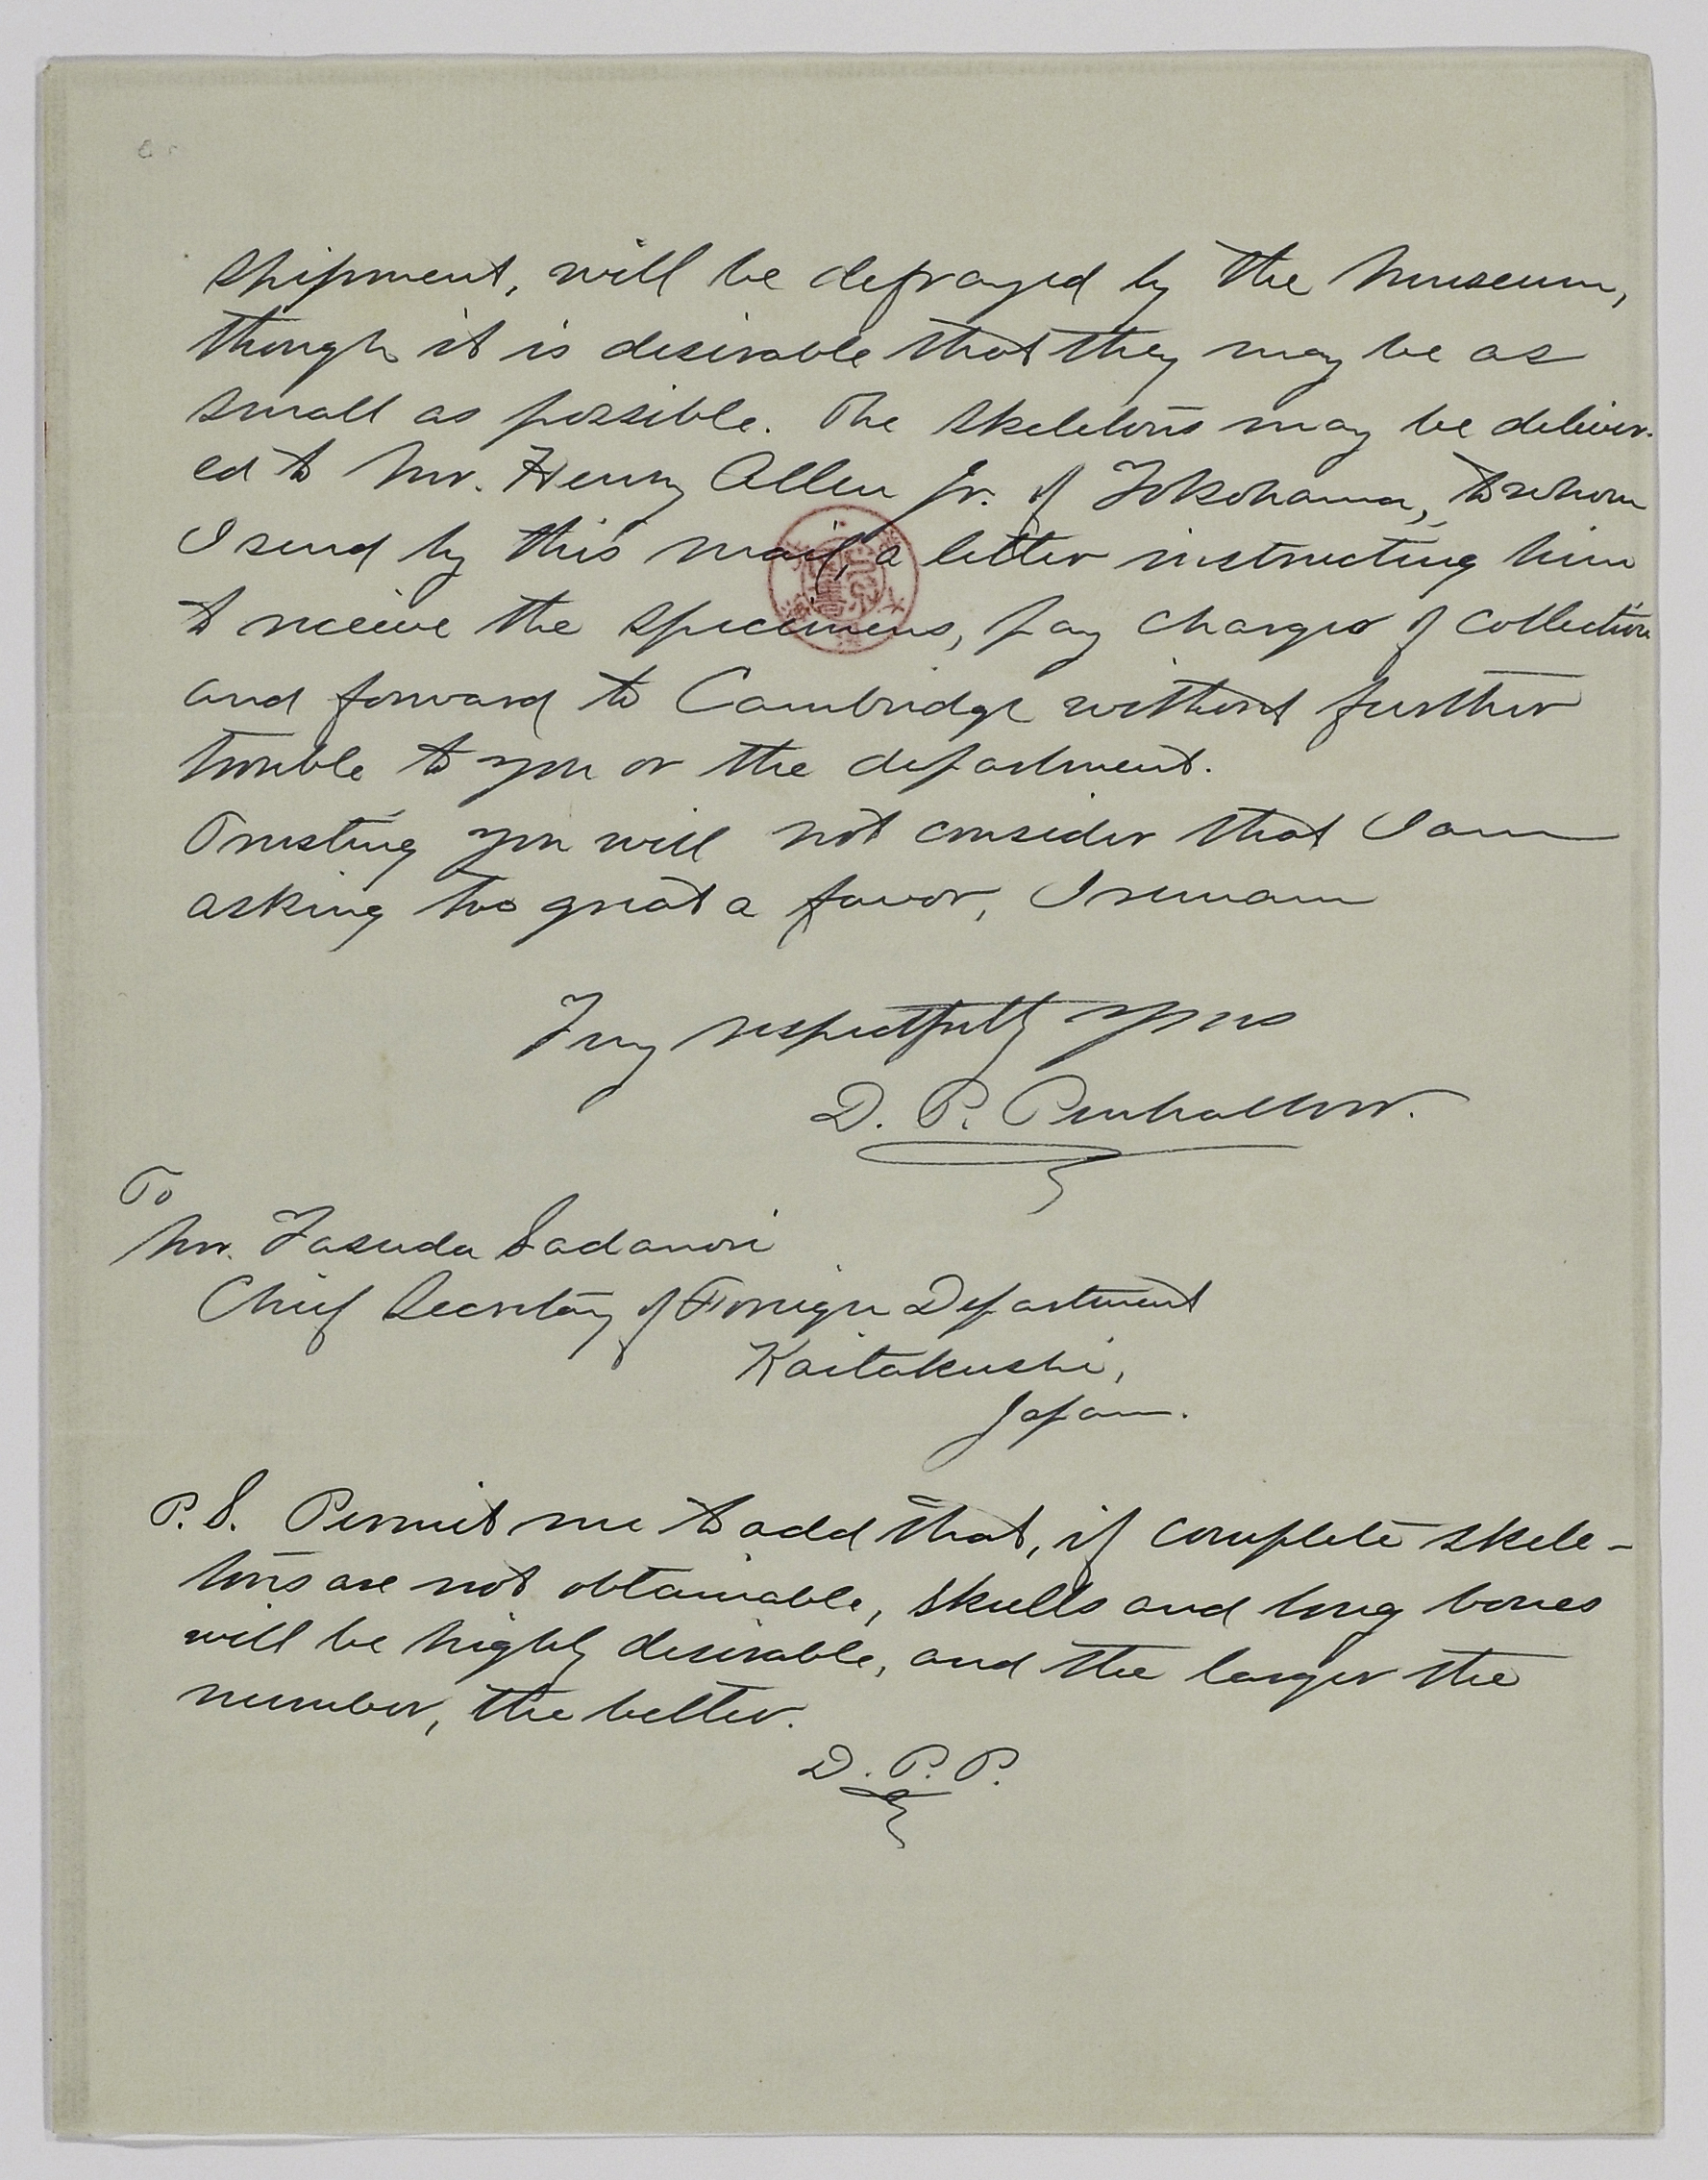 shipment, will be defrayed by the Museum,
though it is desirable that they may be as
small as possible. The skeletons may be deliver-
ed to Mr. Henry Allen Jr. of Yokohama, to whom
I send by this mail, a letter instructing him
to receive the specimens, pay charges of collection
and forward to Cambridge without further
trouble to you or the department.
Trusting you will not consider that I am
asking too great a favor, I remain
Very respectfully yours
D. P. Penhallow.
To
Mr. Yasuda Sadanori
Chief Secretary of Foreign Department
Kaitakushi,
Japan.
P.S. Permit me to add that, if complete skele-
tons are not obtainable, skulls and long bones
will be highly desirable, and the larger the
number, the better.
D. P. P.